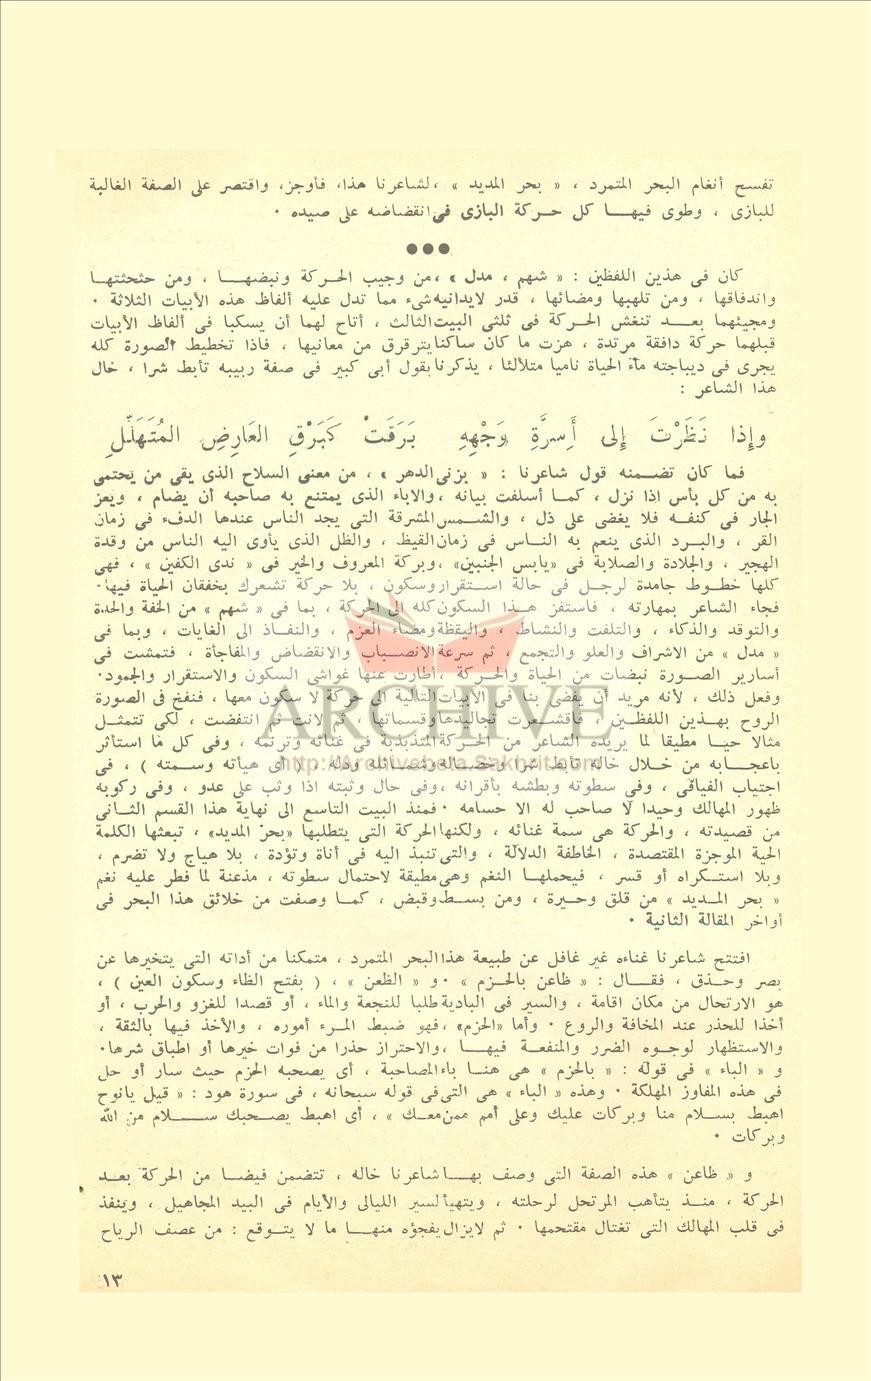 تفسح أنغام البحر المتمرد ، « بحر المديد » ، لشاعرنا هذا، فأوجز، واقتصر على الصفة الغالبة
للبازى ، وطوى فيهـــا كل حــركة البازى فى انقضاضه على صيده ٠
●●●
كان فى هذين اللفظين : « شهم ، مدل » ، من وجيب الحــركة ونبضهـــا ، ومن حثحثتهــا
واندفاقها ، ومن تلهبها ومضائها ، قدر لايدانيه شىء مما تدل عليه ألفاظ هذه الأبيات الثلاثة ٠
ومجيئهما بعـــد تنغش الحـركة فى ثلثى البيت الثالث ، أتاح لهما أن يسكبا فى ألفاظ الأبيات
قبلهما حركة دافقة مرتدة ، هزت ما كان ساكنا يترقرق من معانيها ، فاذا تخطيط الصورة كله
يجرى فى ديباجته ماء الحياة ناميا متلألئا ، يذكرنا بقول أبى كبير فى صفة ربيبه تأبط شرا ، خال
هذا الشاعر :
وإِذا نَظَرْتَ إلى أَسِرَّةِ وَجْهِهِ بَرَقَتْ كَبَرْقِ العَارِضِ المُتَهَلِّلِ
فما كان تضــمنه قول شاعرنا : « بزنى الدهر » ، من معنى السلاح الذى يقى من يحتمى
به من كل بأس اذا نزل ، كمــا أسلفت بيانه ، والاباء الذى يمتنع به صاحبه أن يضام ، ويعز
الجار فى كنفــه فلا يغضى على ذل ، والشــمس المشرقة التى يجد الناس عندها الدفء فى زمان
القر ، والبــرد الذى ينعم به النــاس فى زمان القيظ ، والظل الذى يأوى اليه الناس من وقدة
الهجير ، والجلادة والصلابة فى «يابس الجنبين» ، وبركة المعروف والخير فى « ندى الكفين » ، فهى
كلها خطــوط جامدة لرجــل فى حالة اســتقرار وسكون ، بلا حركة تشعرك بخفقان الحياة فيها٠
فجاء الشاعر بمهارته ، فاستفز هــذا السكون كله الى الحركة ، بما فى « شهم » من الخفة والحدة
والتوقد والذكاء ، والتلفت والنشاط ، واليقظة ومضاء العزم ، والنفــاذ الى الغايات ، وبما فى
« مدل » من الاشراف والعلو والتجمع ، ثم سرعة الانصــباب والانقضاض والمفاجأة ، فتمشت فى
أسارير الصــورة نبضات من الحياة والحــركة ، أطارت عنها غواشى السكون والاستقرار والجمود٠
وفعل ذلك ، لأنه مريد أن يفضى بنا فى الأبيات التالية الى حركة لا سكون معها ، فنفخ فى الصورة
الروح بهــذين اللفظــين ، فاقشــعرت تجاليدها وقسماتها ، ثم لانت ثم انتفضت ، لكى تتمثــل
مثالا حيــا مطيقا لما يريده الشاعر من الحــركة المتذبذبة فى غنائه وترنمه ، وفى كل ما استأثر
باعجــابه من خــلال خاله تأبط شرا وخصــاله وشمــائله ودله ، ( أى هيأته وسمــته ) ، فى
اجتياب الفيافى ، وفى سطوته وبطشه بأقرانه ، وفى حال وثبته اذا وثب على عدو ، وفى ركوبه
ظهور المهالك وحيدا لا صاحب له الا حسامه ٠ فمنذ البيت التاسع الى نهاية هذا القسم الثــانى
من قصيدته ، والحركة هى سمة غنائه ، ولكنها الحركة التى يتطلبها «بحر المديد» ، تبعثها الكلمة
الحية الموجزة المقتصدة ، الخاطفة الدلالة ، والتى تنبذ اليه فى أناة وتؤدة ، بلا هياج ولا تضرم ،
وبلا استــكراه أو قسر ، فيحملهــا النغم وهى مطيقة لاحتمال سطوته ، مذعنة لما فطر عليه نغم
« بحر المــديد » من قلق وحــيرة ، ومن بســط وقبض ، كمــا وصفت من خلائق هذا البحر فى
أواخر المقالة الثانية ٠
افتتح شاعرنا غناءه غير غافل عن طبيعة هذا البحر المتمرد ، متمكنا من أداته التى يتخيرها عن
بصر وحــذق ، فقــــال : « ظاعن بالحــزم » ٠ و « الظعن » ، ( بفتح الظاء وسكون العين ) ،
هو الارتحال من مكان اقامة ، والسير فى البادية طلبا للنجعة والماء ، أو قصدا للغزو والحرب ، أو
أخذا للحذر عند المخافة والروع ٠ وأما «الحزم» ، فهو ضبط المــرء أموره ، والأخذ فيها بالثقة ،
والاستظهار لوجــوه الضرر والمنفعــة فيهــــا ، والاحتراز حذرا من فوات خيرها أو اطباق شرها٠
و « الباء » فى قوله : « بالحزم » هى هنــا باء المصاحبة ، أى يصحبه الحزم حيث سار أو حل
فى هذه المفاوز المهلكة ٠ وهذه « الباء » هى التى فى قوله سبحانه ، فى سورة هود : « قيل يانوح
اهبط بســلام منا وبركات عليك وعلى أمم ممن معــك » ، أى اهبط يصــحبك ســــلام من الله
وبركات ٠
و « ظاعن » هذه الصفة التى وصف بهــا شاعرنا خاله ، تتضمن فيضــا من الحركة بعــد
الحركة ، منــذ يتأهب المرتحل لرحلته ، ويتهيأ لسير الليالى والأيام فى البيد المجاهيل ، وينفذ
فى قلب المهالك التى تغتال مقتحمها ٠ ثم لايزال يفجؤه منهــا ما لا يتــوقع : من عصف الرياح
١٣
ARCHIVE
http://Archivebeta.Sakhrit.com